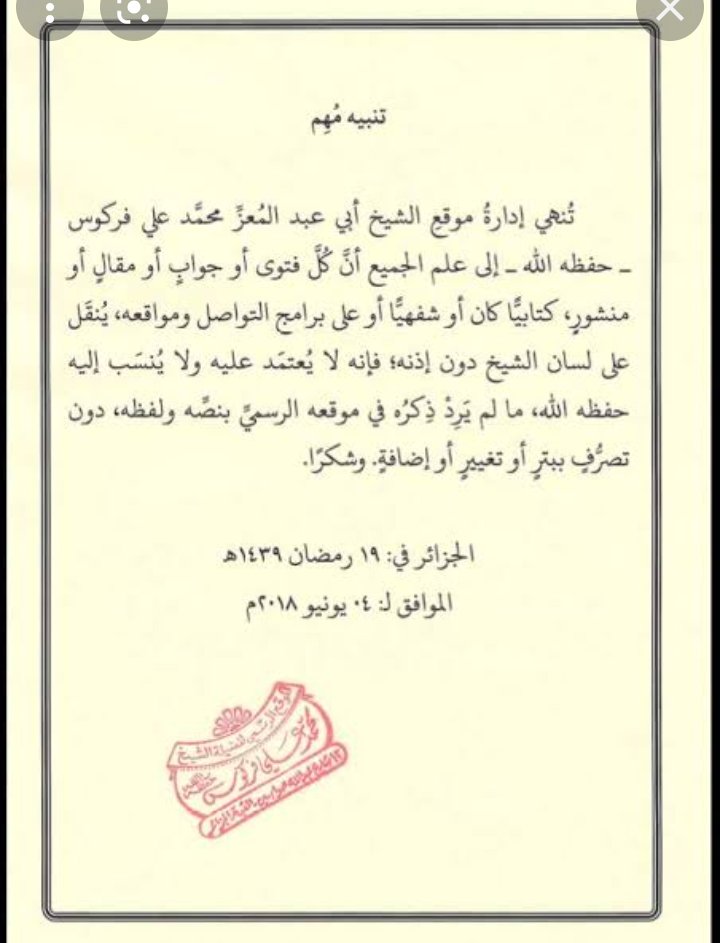 تنبيه مُهِم
تُنهي إدارةُ موقعِ الشيخ أبي عبد المُعزِّ محمَّد علي فركوس
ـ حفظه الله ـ إلى علم الجميع أنَّ كُلَّ فتوى أو جوابٍ أو مقالٍ أو
منشورٍ، كتابيًّا كان أو شفهيًّا أو على برامج التواصل ومواقعه، يُنقَل
على لسان الشيخ دون إذنه؛ فإنه لا يُعتمَد عليه ولا يُنسَب إليه
حفظه الله، ما لم يَرِدْ ذِكرُه في موقعه الرسميِّ بنصِّه ولفظه، دون
تصرُّفٍ ببترٍ أو تغييرٍ أو إضافةٍ. وشكرًا.
الجزائر في: ١٩ رمضان ١٤٣٩ﻫ
الموافق ﻟ: ٠٤ يونيو ٢٠١٨م
الموقع الرسمي لفضيلة الشيخ
محمد علي فركوس
حفظه الله